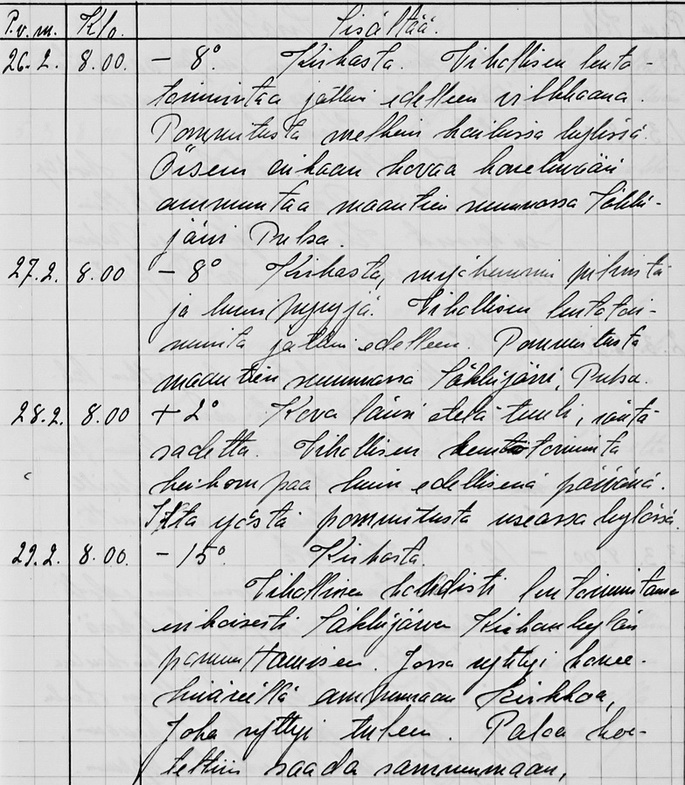 P.v.m. Klo. Sisältää.
26.2. 8.00. – 8° Kirkasta. Vihollisen lento-
toimintaa jatkui edelleen vilkkaana.
Pommitusta melkein kaikissa kylissä.
Öiseen aikaan kovaa konekivääri
ammuntaa maantien suunnassa Säkki-
järvi Pulsa.
27.2. 8.00 – 8° Kirkasta, myöhemmin pilvistä
ja lumi pyryjä. Vihollisen lentotoi-
minta jatkui edelleen. Pommitusta
maantien suunnassa Säkkijärvi, Pulsa.
28.2. 8.00 + 2° Kova länsi etelä tuuli, räntä
sadetta. Vihollisen lentotoiminta
heikompaa kuin edellisenä päivänä.
Ilta yöstä pommitusta useassa kylässä.
29.2. 8.00. – 15° Kirkasta.
Vihollinen kohdisti
erikoisesti Säkkijärven Kirkonkylän
pommittamiseen. Jossa syttyi kone-
kivääreillä ammumaan kirkkoa,
Joka syttyi tuleen. Paloa koe-
tettiin saada sammumaan,